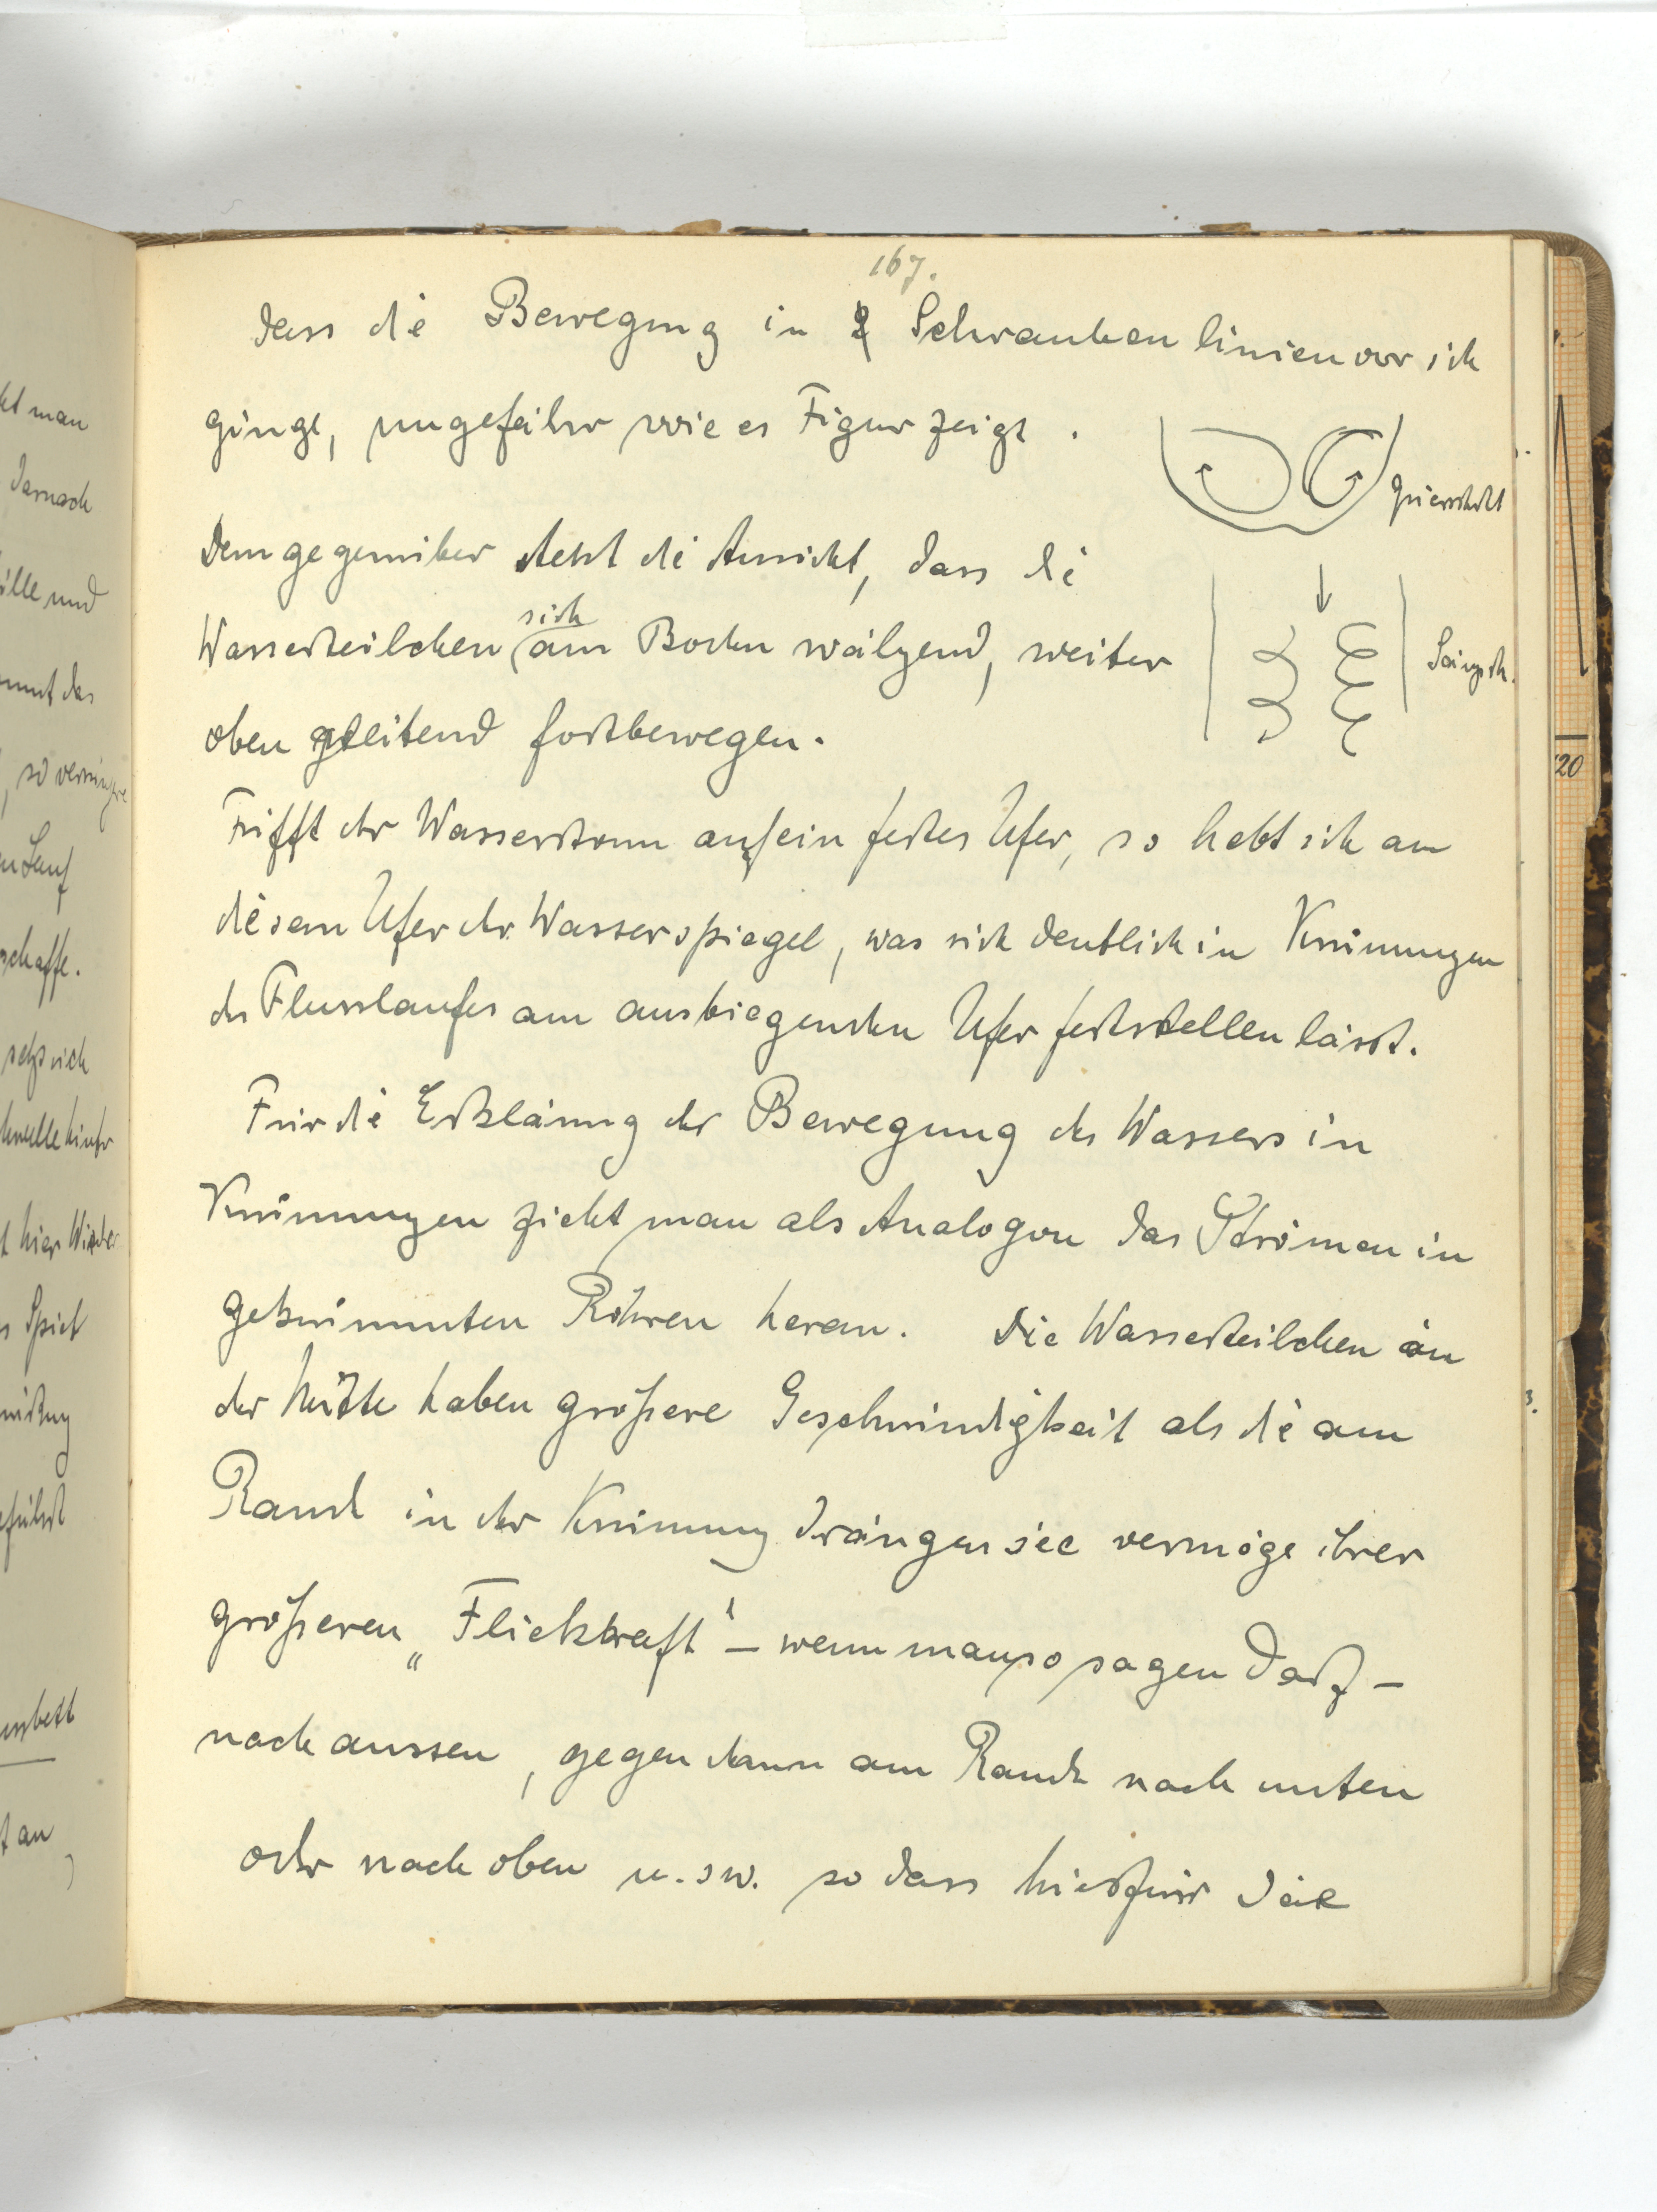 167.
dass die Bewegung in 2 Schraubenlinien vor sich
ginge, ungefähr wie es Figur zeigt.
Querschnitt
Demgegenüber steht die Ansicht, dass die
Wasserteilchen sich am Boden wälzend, weiter
Längsch.
oben gleitend fortbewegen.
Trifft der Wasserstrom auf ein festes Ufer, so hebt sich an
diesem Ufer der Wasserspiegel, was sich deutlich in Krümmungen
des Flusslaufes am ausbiegenden Ufer feststellen lässt.
Für die Erklärung der Bewegung des Wassers in
Krümmungen zieht man als Analogon das Strömen in
gekrümmten Röhren heran. Die Wasserteilchen in
der Mitte haben größere Geschwindigkeit als die am
Rande in der Krümmung drängen sie vermöge ihrer
größeren „Fliehkraft" – wenn man so sagen darf –
nach aussen, gegen dann am Rande nach unten
oder nach oben u.sw. so dass hierfür die
20
ht man
darnach
ille und
mmt das
Lauf
schaffe.
sich
hinter
hier
Spiel
führt
bett
t an